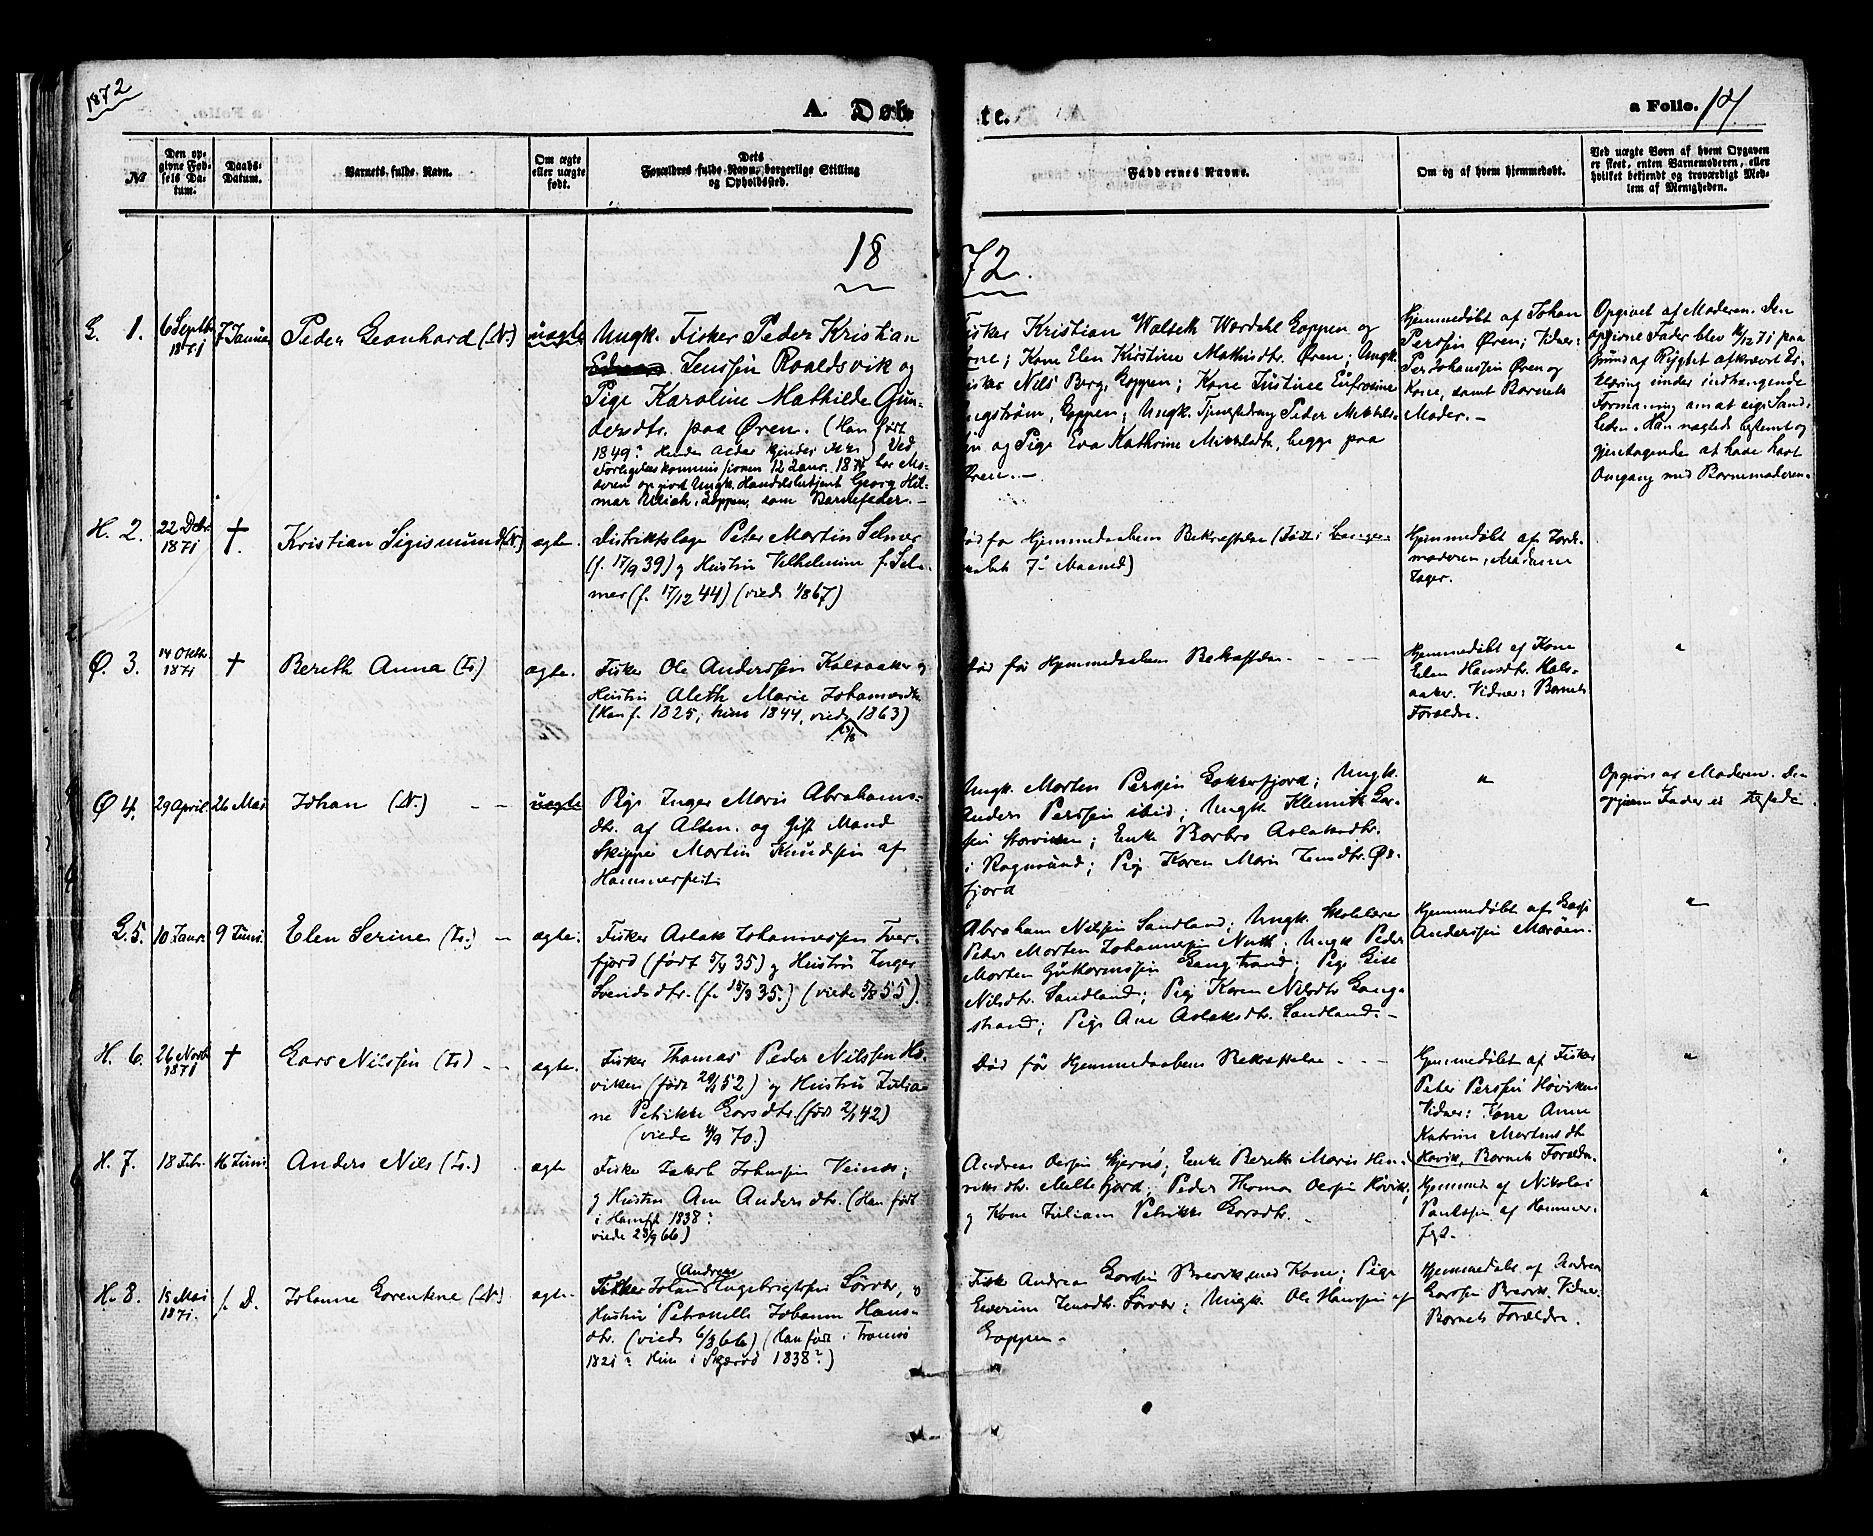 1872
A. Døb
te.
a Folio. 17
№
Den op-
givne Fød-
sels Da-
tum.
Daabs-
Datum.
Barnets fulde Navn.
Om ægte
eller uægte
født.
Dets
Forældres fulde Navn, borgerlige Stilling
og Opholdssted.
Faddernes Navne.
Om og af hvem hjemmedøbt.
Ved uægte Børn af hvem Opgaven
er skeet, enten Barnemoderen, eller
hvilket bekjendt og troværdigt Med-
lem af Menigheden.
18
72.
1.
6 Septbr
1871
7 Januar
Peder Leonhard (N.)
uægte
Ungk. Fisker Peder Kristian
Jenssen Roaldsvik og
Pige Karoline Mathilde Gun-
dersdtr. paa Øren. (Han født
1849? Hendes Alder kjendes ikke.) Ved
Forligelseskommissionen 12 Janr. 1871 har Mo-
deren opgivet Ungk. Handelsbetjent Georg Hil-
mar Ulich, Loppen, som Barnefader.-
Fisker Kristian Waltek Wardahl Loppen og
Kone; Kone Elen Kirstine Mathisdtr. Øren; Ungk.
Fisker Nils Berg, Loppen; Kone Justine Eufrosine
Loppen; Ungk. Tjenestedreng Peder Mikkels-
og Pige Eva Kathrine Mikkelsdtr., begge paa
Øren.-
Hjemmedøbt af Johan
Perssen Øren; Vidner:
Per Johanssen Øren og
Kone, samt Barnets
Moder.-
Opgivet af Moderen. Den
opgivne Fader blev 11/12 71 paa
Grund af Rygtet afkrævet Er-
klæring under indtrængende
Formaning om at sige Sand-
heden. Han nægtede bestemt og
gjentagende at have havt
Omgang med Barnemoderen.
H. 2.
22 Debr.
1871
†.
Kristian Sigismund (N.)
ægte.
Distriktslæge Peter Martin Selmer
(f. 17/9 39) og Hustru Vilhelmine f. Sel-
mer (f. 17/12 44) (viede 1/867)
Død før Hjemmedaabens Bekræftelse (Født i Svanger-
skabets 7de Maaned)
Hjemmedøbt af Jorde-
moderen, Madame
Lager.
Ø. 3.
14 Oktbr.
1871
†
Bereth Anna (L.)
ægte.
Fisker Ole Anderssen Kalsaaker og
Hustru Aleth Marie Johannesdtr.
(Han f. 1825, hun 1844, viede 1863)
Død før Hjemmedaabens Bekræftelse. - - -
Hjemmedøbt af Kone
Elen Hansdtr. Kals-
aaker. Vidner: Barnets
Forældre.
"
Ø 4.
29 April.
26 Mai
Johan (N.) - -
uægte
Pige Inger Maris Abrahams-
dtr. af Alten. og Gift Mand
Skipper Martin Knudsen af
Hammerfest.
Ungk. Morten Perssen Lakkefjord; Ungk.
Anders Perssen ibid; Ungk. Klemit Lar-
sen Storviken; Enke Barbro Aslaksdtr.
i Rognsund; Pige Karen Maris Jensdtr. Øx-
fjord
"
Opgivet af Moderen. Den
opgivne Fader er tilstede.
5.
10 Janr.
9 Juni.
Elen Serine (L.) -
ægte.
Fisker Aslak Johannessen Tver-
fjord (født 5/4 35) og Hustru Inger
Svendsdtr. (f. 15/3 35.) (viede 5/8 55).
Abraham Nilssen Sandland; Ungk. Skolelærer
Peder Morten Johannessen Nuth; Ungk. Peder
Morten Guttormssen Langstrand; Pige Lise
Nilsdtr. Sandland; Pige Karen Nilsdtr. Lang-
strand; Pige Ane Aslaksdtr. Sandland.-
Hjemmedøbt af Lars
Anderssen Marøen.
"
H. 6.
26 Novbr
1871
†
Lars Nilssen (L.) - -
ægte.
Fisker Thomas Peder Nilssen Hø-
viken (født 29/1 52) og Hustru Julia-
ne Petrikke Larsdtr. (født 2/1 42)
(viede 4/9 70.)
Død før Hjemmedaabens Bekræftelse - - -
Hjemmedøbt af Fisker
Peter Perssen Høviken
Vidner: Kone Anne
Katrine Mortensdtr.
Høvik, Barnets Forældre.
"
H. 7.
18 Febr.
16 Juni
Anders Nils (L.)
ægte
Fisker Jakob Johnsen Veines;
og Hustru Ane Andersdtr. (Han født
i Hamfst. 1838?
viede 23/9 66)
Andreas Olssen Hjernø; Enke Bereth Maris Hen-
riksdtr. Meltefjord; Peder Thomas Olssen Høvik,
og Kone Juliane Petrikke Larsdtr. -
Hjemmed. af Nikolai
Paulssen af Hammer-
fest.
"
H. 8.
15 Mai
1871.
s. D.
Johanne Lorentine (N.)
ægte.
Andreas
Fisker Johan Ingebrigtsen Sørvær, og
Hustru Petronelle Johanne Hans-
dtr. (viede 6/8 66) (Han født i Tromsø
1821? Hun i Skjervø 1838?)
Fisker Andreas Larssen Brevik med Kone; Pige
Severine Jensdtr. Sørvær; Ungk. Ole Hanssen af
Loppen.-
Hjemmedøbt af Andreas
Larssen Brevik. Vidner
Barnets Forældre.